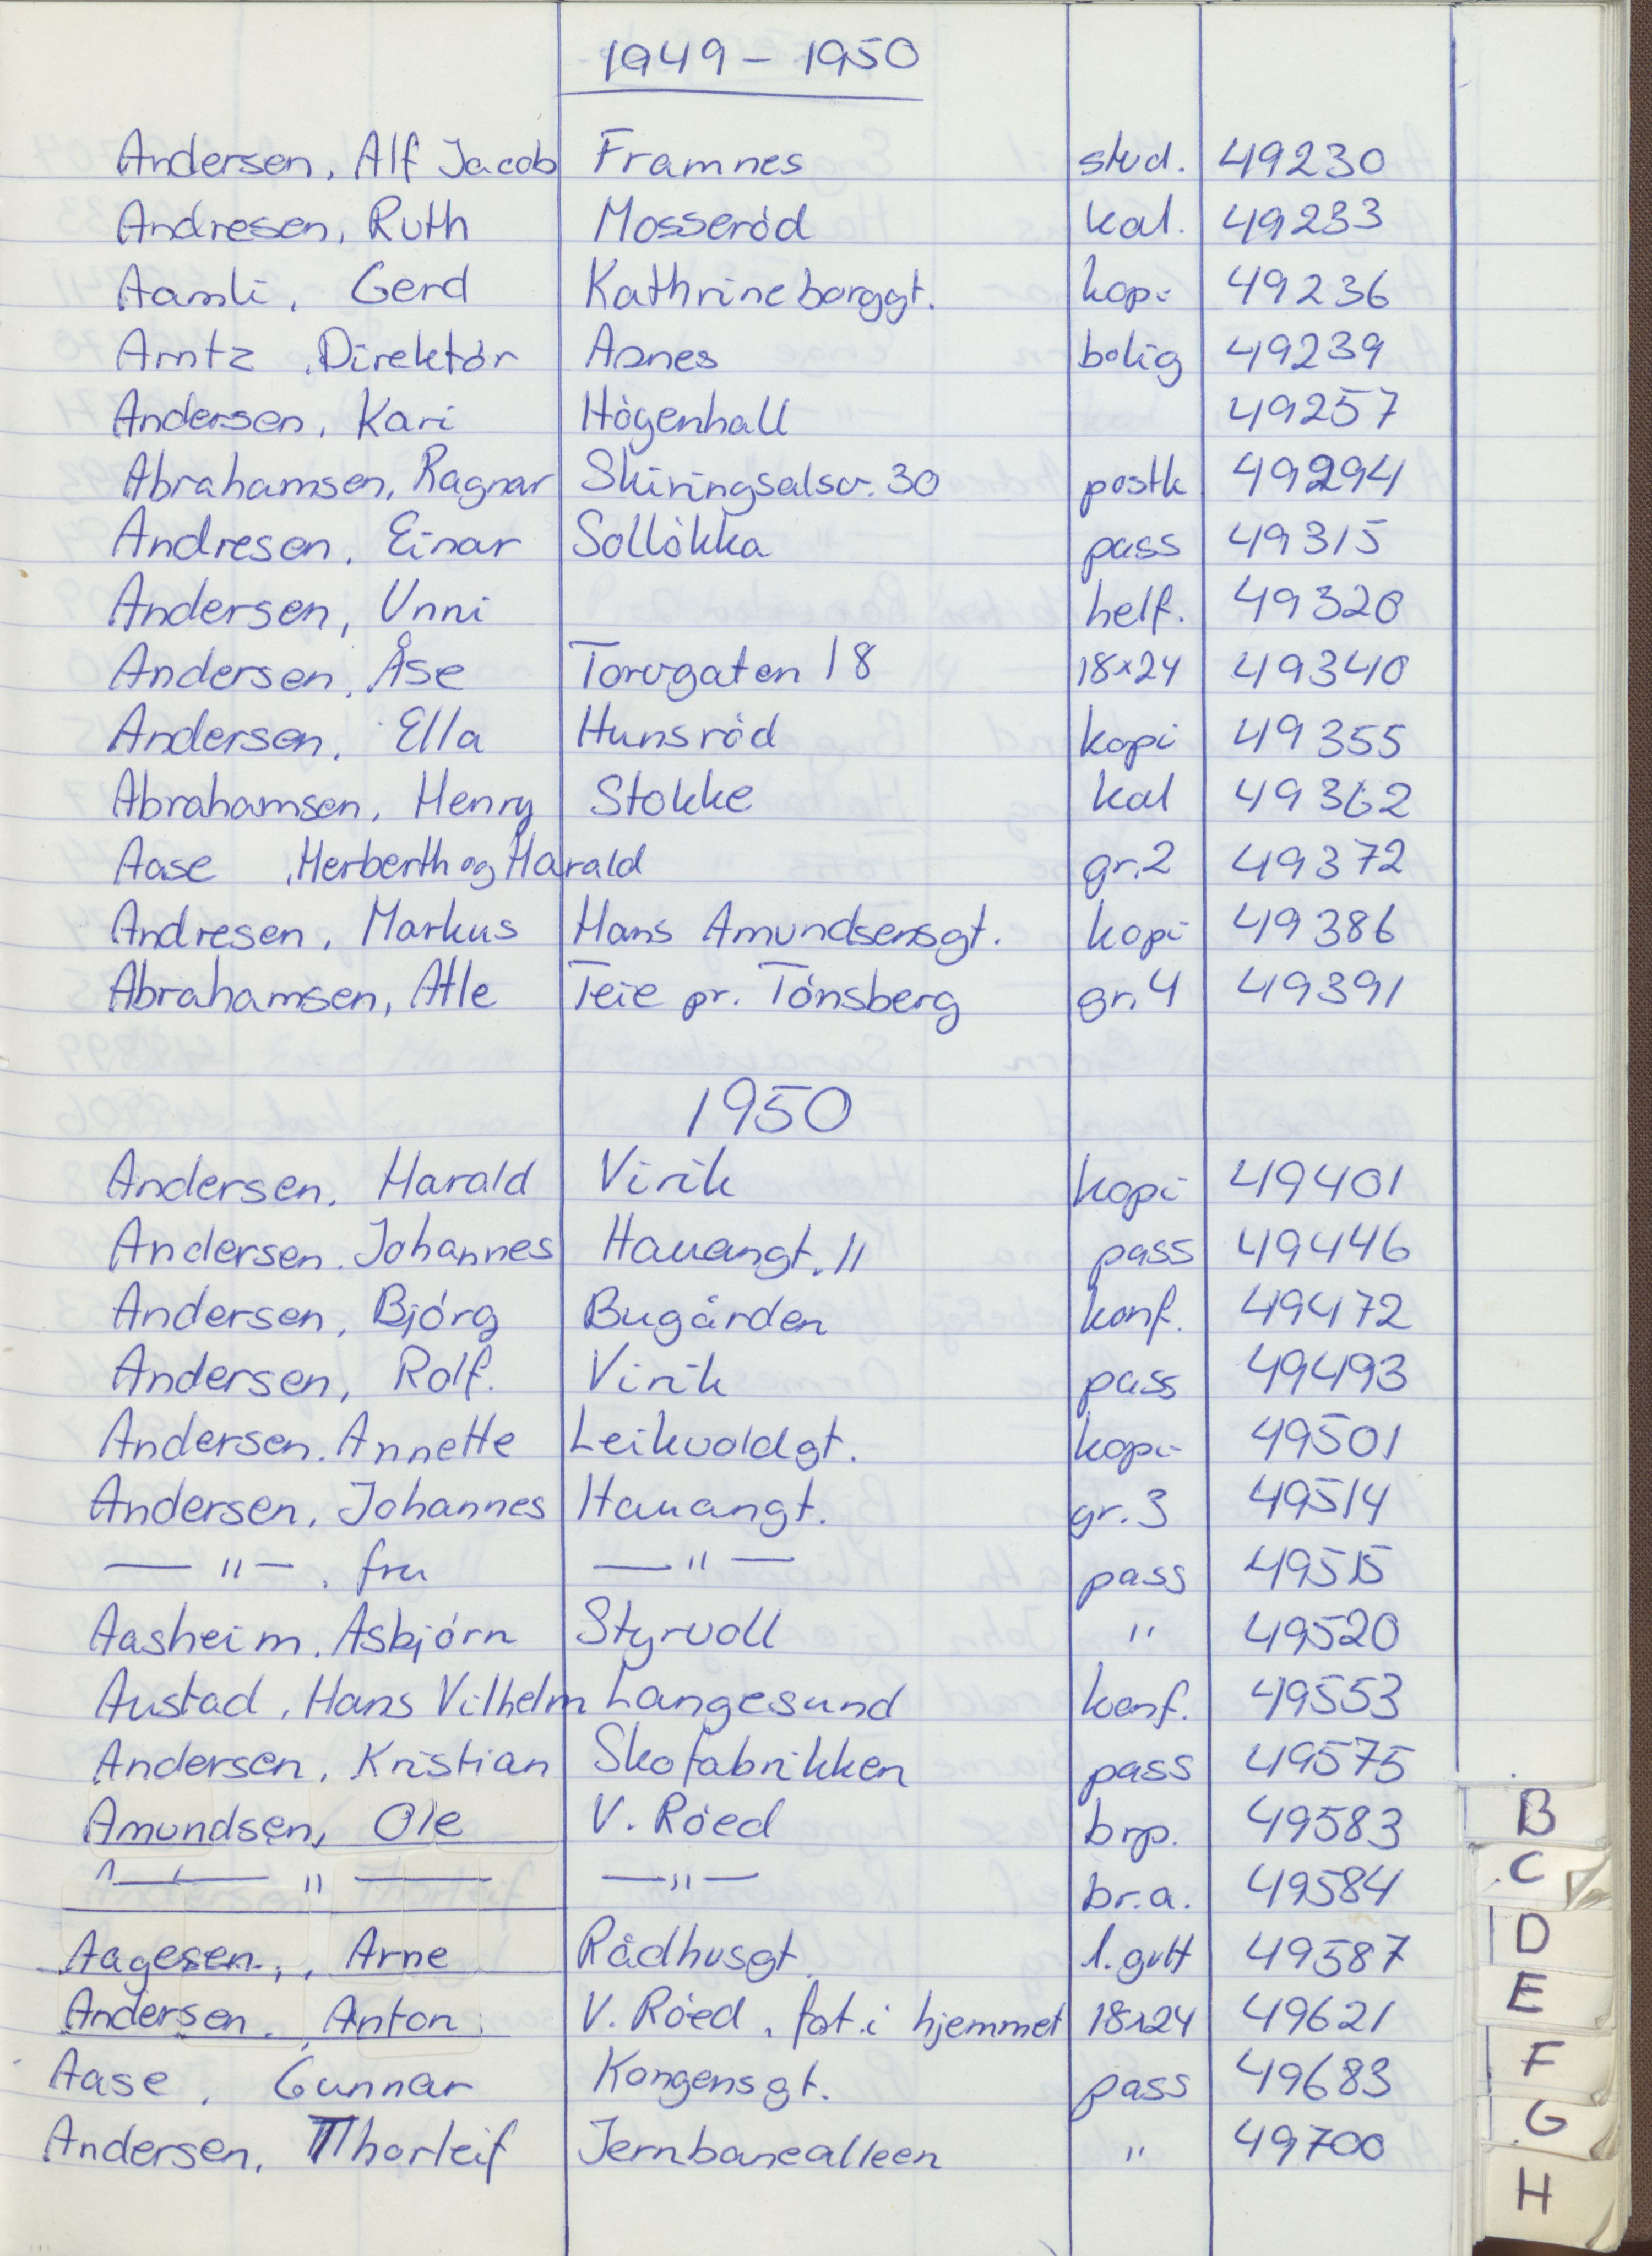 1949 - 1950
Andersen, Alf Jacob Framnes stud. 49230
Andresen, Ruth Mosseród kal. 49233
Aamli, Gerd Kathrineborggt. kopi 49236
Arntz, Direktór Asnes bolig 49239
Andersen, Kari Hógenhall 49257
Abrahamsen, Ragnar Skiringsalsv. 30 postk 49294
Andresen, Einar Sollókka pass 49315
Andersen, Unni helf. 49320
Andersen, Åse Torvgaten 18 18x24 49340
Andersen, Ella Hunsród kopi 49355
Abrahamsen, Henry Stokke kal 49362
Aase, Herberth og Harald gr. 2 49372
Andresen, Markus Hans Amundsensgt. kopi 49386
Abrahamsen, Atle Teie pr. Tónsberg gr. 4 49391
1950
Andersen, Harald Virik kopi 49401
Andersen, Johannes Hauangt. 11 pass 49446
Andersen, Bjórg Bugården konf. 49472
Andersen, Rolf. Virik pass 49493
Andersen. Annette Leikvoldgt. kopi 49501
Andersen, Johannes Hauangt. gr. 3 49514
— " —, fru — " — pass 49515
Aasheim. Asbjórn Styrvoll " 49520
Austad, Hans Vilhelm Langesund konf. 49553
Andersen, Kristian Skofabrikken pass 49575
Amundsen, Ole V. Róed brp. 49583
— " — — " — br.a. 49584
Aagesen, Arne Rådhusgt. 1. gutt 49587
Andersen, Anton V. Róed, fot. i hjemmet 18x24 49621
Aase, Gunnar Kongensgt. pass 49683
Andersen, Thorleif Jernbanealleen " 49700
B
C
D
E
F
G
H